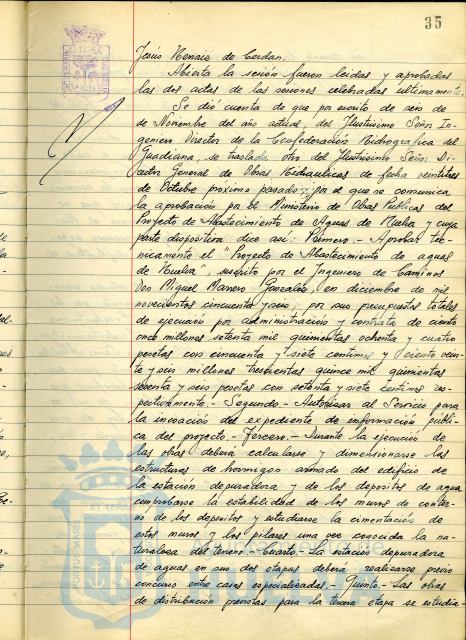 35
Jesús Henaiz de Cerdan.
Abierta la sesión fueron leidas y aprobadas
las dos actas de las sesiones celebradas ultimamente.
Se dió cuenta de que por escrito de seis de
de Noviembre del año actual, del Ilustrisimo Señor In-
geniero Director de la Confederación Hidrografica del
Guadiana, se traslada otro del Ilustrisimo Señor Di-
rector General de Obras Hidraulicas de fecha veintitres
de Octubre proximo pasado y por el que se comunica
la aprobación por el Ministerio de Obras Publicas del
Proyecto de Abastecimiento de Aguas de Huelva y cuya
parte dispositiva dice asi: Primero.- Aprobar tec-
nicamente el "Proyecto de Abastecimiento de aguas
de Huelva", suscrito por el Ingeniero de Caminos
Don Miguel Marrero Gonzalez, en diciembre de mil
novecientos cincuenta y seis, por sus presupuestos totales
de ejecución por administración y contrata de ciento
once millones setenta mil quinientas ochenta y cuatro
pesetas con cincuenta y siete centimos y ciento vein-
te y seis millones trescientas quince mil quinientas
setenta y seis pesetas con setenta y siete centimos res-
pectivamente.- Segundo.- Autorizar al Servicio para
la incoación del expediente de información publi-
ca del proyecto.- Tercero.- Durante la ejecución de
las obras deberá calcularse y dimensionarse las
estructuras de hormigon armado del edificio de
la estación depuradora y de los depositos de agua
comprobarse la estabilidad de los muros de contor-
no de los depositos y estudiarse la cimentación de
estos muros y los pilares una vez conocida la na-
turaleza del terreno.- Cuarto.- La estación depuradora
de aguas en sus dos etapas deberá realizarse previo
concurso entre casas especializadas.- Quinto.- Las obras
de distribución previstas para la tercera etapa se estudia-